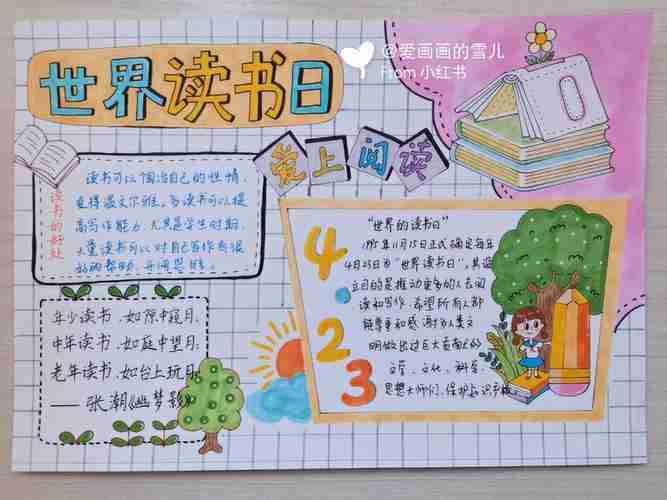 @爱画画的雪儿
From 小红书
世界读书日
爱上阅读
读书的好处
读书可以陶冶自己的性情,
使得温文尔雅。多读书可以提
高写作能力,尤其是学生时期,
大量读书可以对自己写作有很
好的帮助,开阔思维。
年少读书,如隙中窥月;
中年读书,如庭中望月;
老年读书,如台上玩月。
——张潮《幽梦影》
4.
2
3
"世界的读书日"
1995年11月15日正式确定每年
4月23日为"世界读书日",其设
立目的是推动更多的人去阅
读和写作,希望所有人都
能尊重和感谢为人类文
明做出过巨大贡献的
文学、文化、科学
思想大师们,保护知识产权。